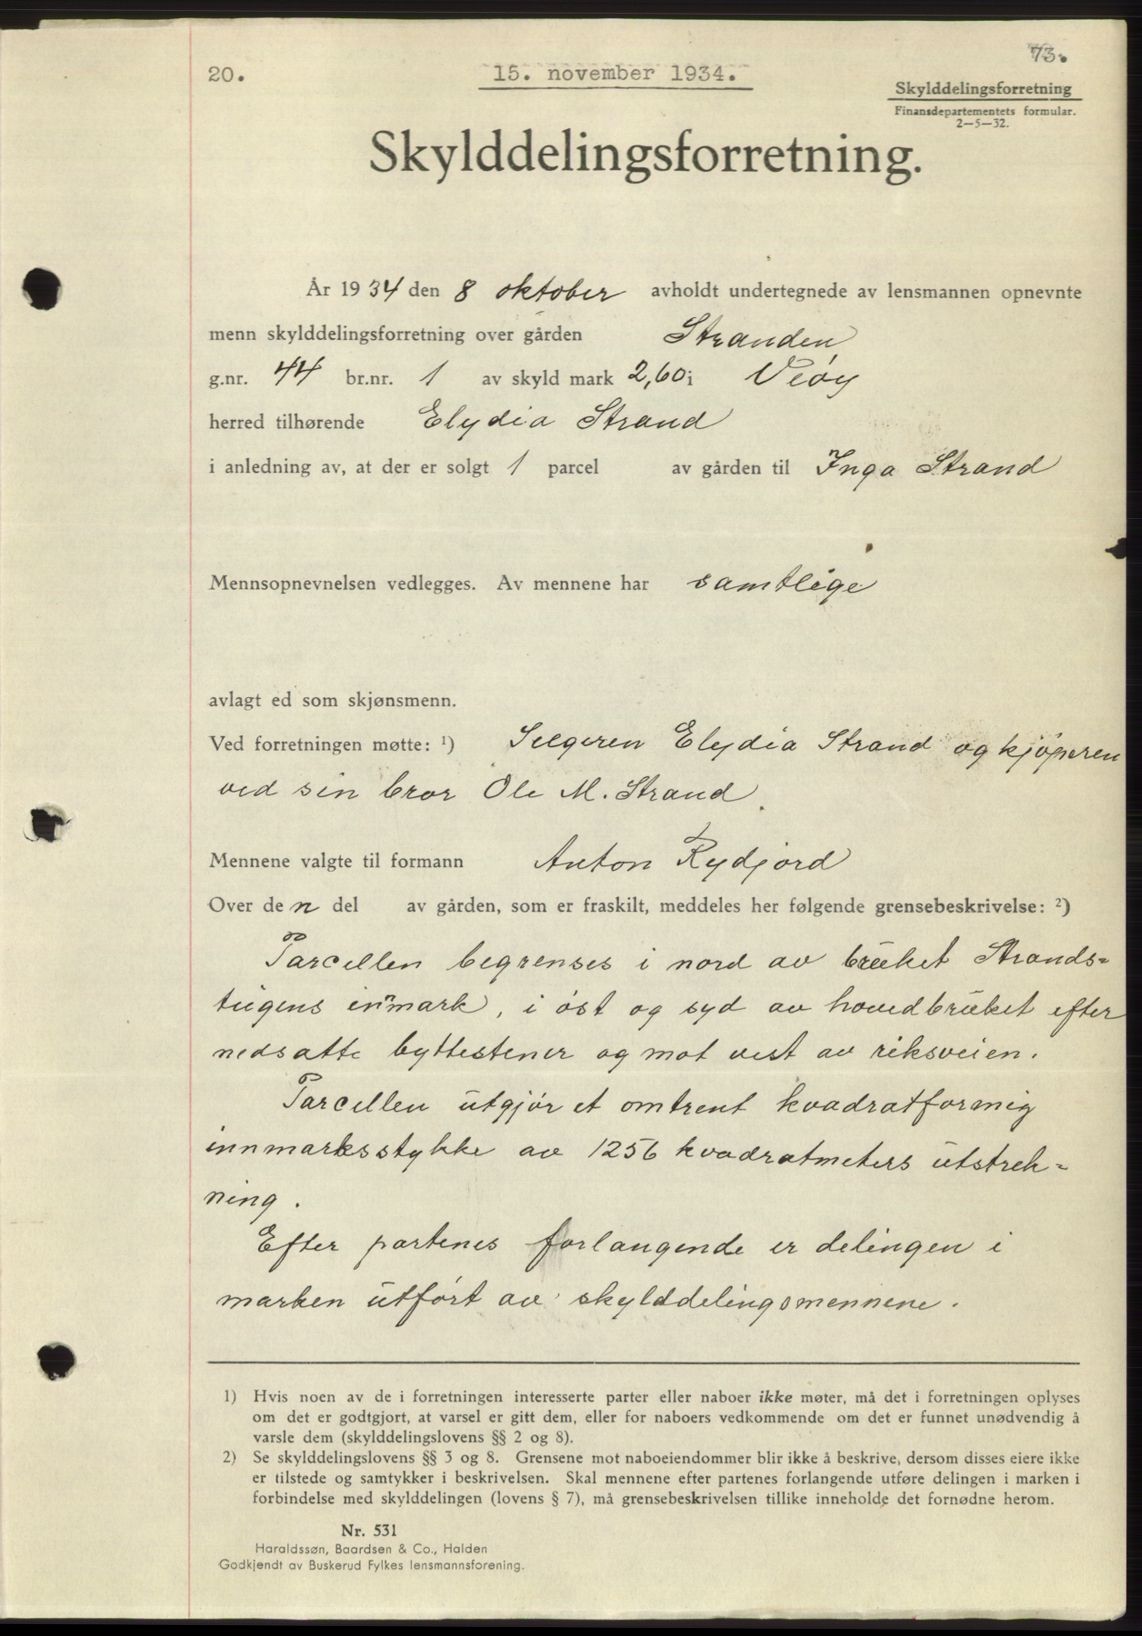 73.
20.
15. november 1934.
Skylddelingsforretning
Finansdepartementets formular.
2—5—32.
Skylddelingsforretning.
År 1934 den 8 oktober avholdt undertegnede av lensmannen opnevnte
menn skylddelingsforretning over gården Stranden
g.nr. 44 br.nr. 1 av skyld mark 2,60 i Veøy
herred tilhørende Elydia Strand
i anledning av, at der er solgt 1 parcel av gården til Inga Strand
Mennsopnevnelsen vedlegges. Av mennene har samtlige
avlagt ed som skjønsmenn.
Ved forretningen møtte: ¹) Selgeren Elydia Strand og kjøperen
ved sin bror Ole M. Strand.
Mennene valgte til formann Anton Rydjord
Over den del av gården, som er fraskilt, meddeles her følgende grensebeskrivelse: ²)
Parcellen begrenses i nord av bruket Strands=
tugens innmark, i øst og syd av hovedbruket efter
nedsatte byttestener og mot vest av riksveien.
Parcellen utgjør et omtrent kvadratformig
innmarksstykke av 1256 kvadratmeters utstrek=
ning.
Efter partenes forlangende er delingen i
marken utført av skylddelingsmennene.
1) Hvis noen av de i forretningen interesserte parter eller naboer ikke møter, må det i forretningen oplyses
om det er godtgjort, at varsel er gitt dem, eller for naboers vedkommende om det er funnet unødvendig å
varsle dem (skylddelingslovens §§ 2 og 8).
2) Se skylddelingslovens §§ 3 og 8. Grensene mot naboeiendommer blir ikke å beskrive, dersom disses eiere ikke
er tilstede og samtykker i beskrivelsen. Skal mennene efter partenes forlangende utføre delingen i marken i
forbindelse med skylddelingen (lovens § 7), må grensebeskrivelsen tillike inneholde det fornødne herom.
Nr. 531
Haraldssøn, Baardsen & Co., Halden
Godkjendt av Buskerud Fylkes lensmannsforening.